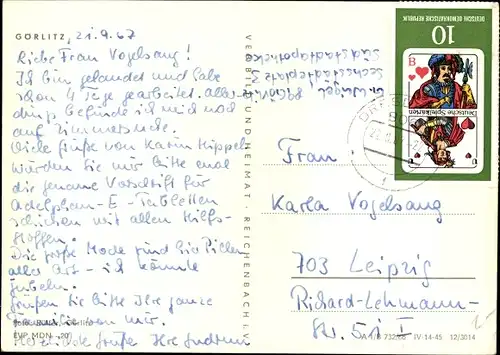 GÖRLITZ, 21.9.67
Liebe Frau Vogelsang!
Ich bin gelandet und habe
schon 4 Tage gearbeitet. aller-
dings befinde ich mich noch
auf Zimmersuche.
Viele Grüße von Karin Hippel
würden Sie mir bitte mal
die genaue Vorschrift für
Adelphan-E-Tabletten
schicken mit allen Hilfs-
stoffen.
Die große Mode sind hier Pillen
aller Art - ich könnte
jubeln.
Grüßen Sie bitte Ihre ganze
von mir.
Herzliche Grüße Ihre
EVP MDN -,20
VERLAG BILD UND HEIMAT, REICHENBACH I. V.
89 Görlitz
Sechsstädteplatz 3
Südstadtapotheke
10
DEUTSCHE DEMOKRATISCHE REPUBLIK
Deutsche Spielkarten
B
U
Frau
Karla Vogelsang
703 Leipzig
Richard-Lehmann-
Str. 51 I
IV-14-45 12/3014